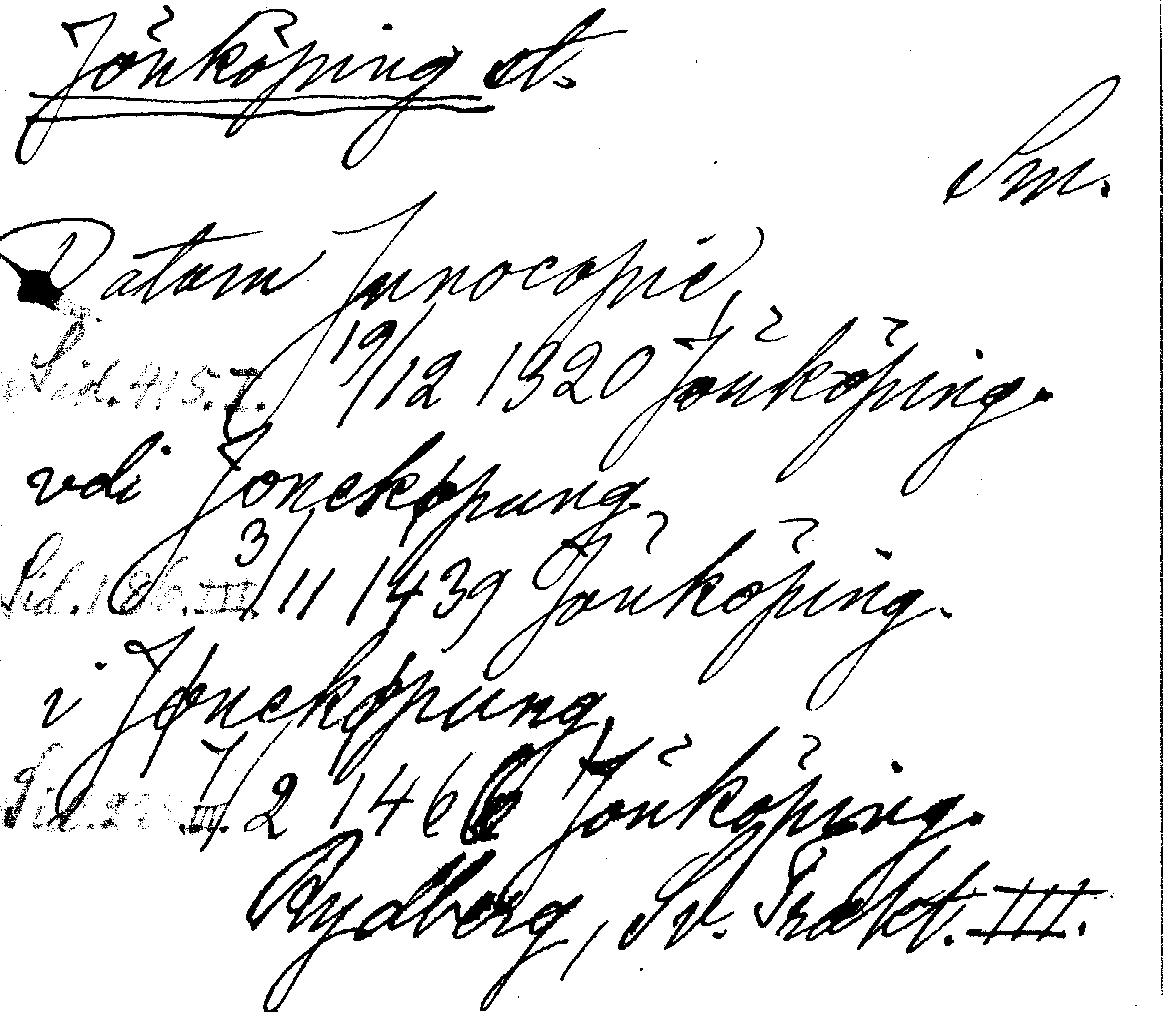 Jönköping st.
Sm.
Datum Junocopie,
Sid. 415. I. 19/12 1320 Jönköping.
vdi Jonekøpung,
Sid. 186. III. 3/11 1439 Jönköping.
i Jønekøpung,
Sid. III. 7/2 1466 Jönköping.
Rydberg, Sv. Trakt. III.